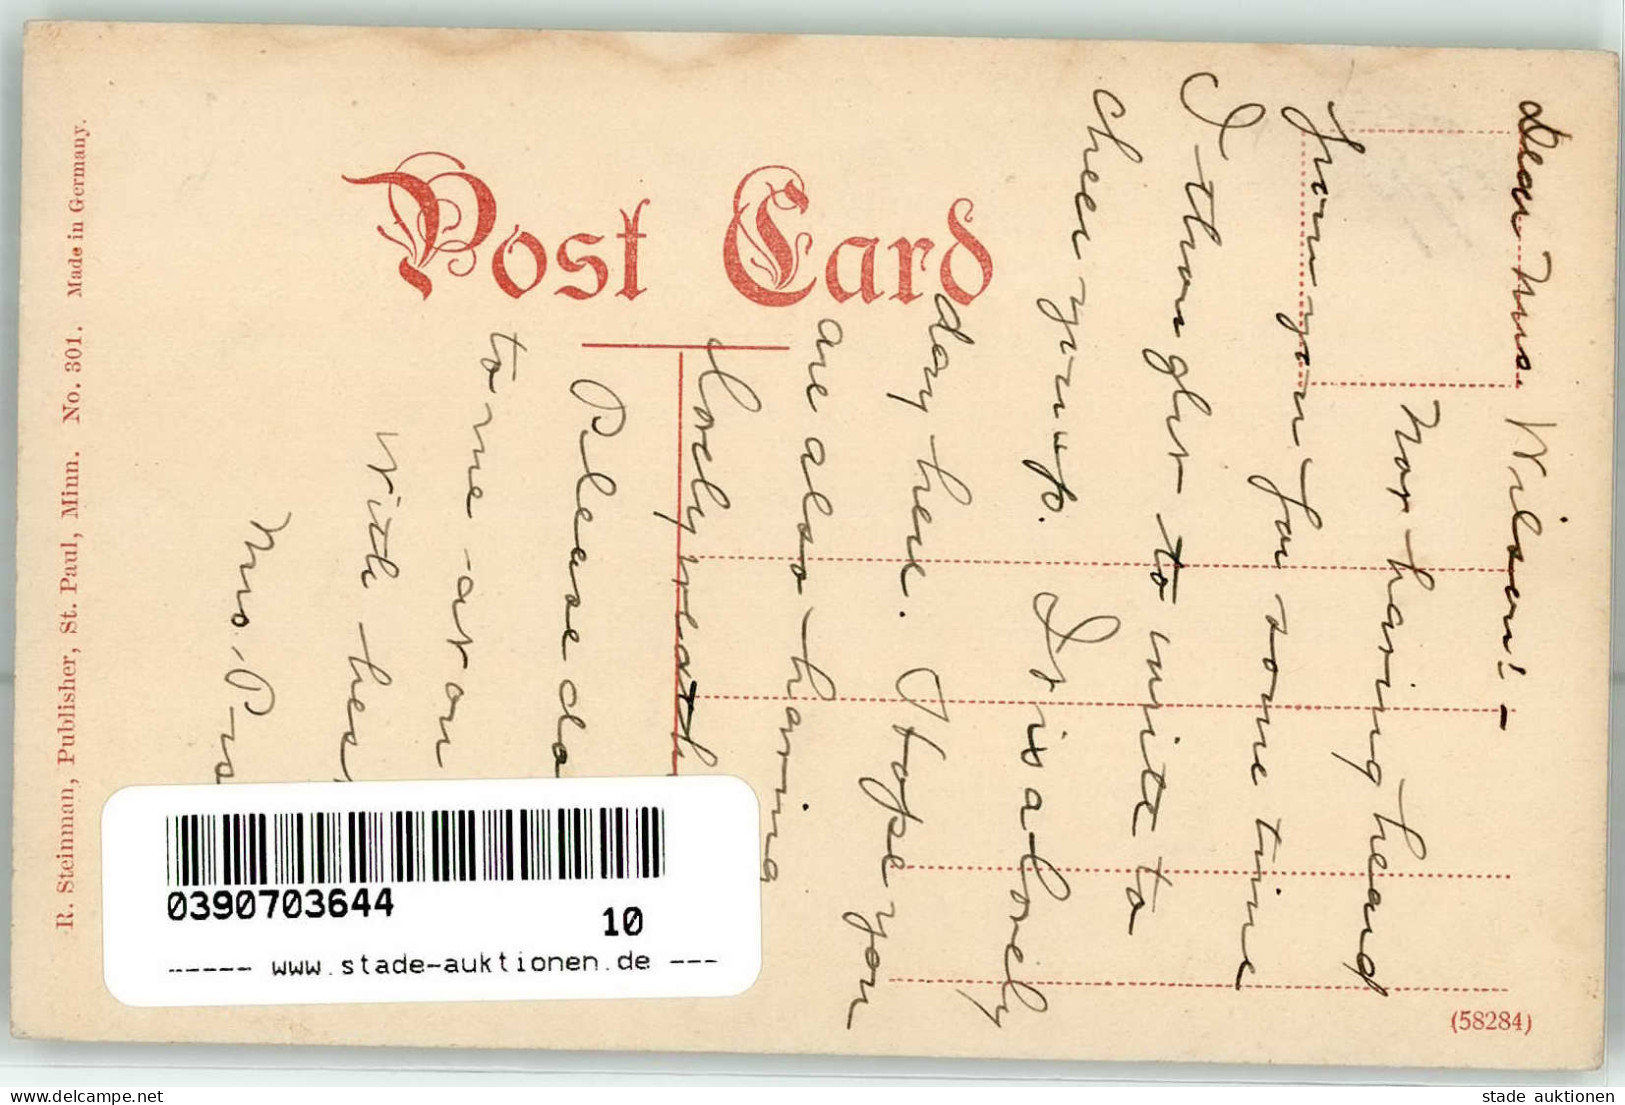 Post Card
R. Steinman, Publisher, St. Paul, Minn. No. 301. Made in Germany.
Dear Mrs. Wilson! -
Not having heard
from you for some time
I thought to write to
cheer you up. It is a lovely
day here. I hope you
are also having
lovely weath
Please do
to me
With bes
Mrs. P
(58284)
0390703644
10
----- www.stade-auktionen.de ---
www.delcampe.net
stade auktionen